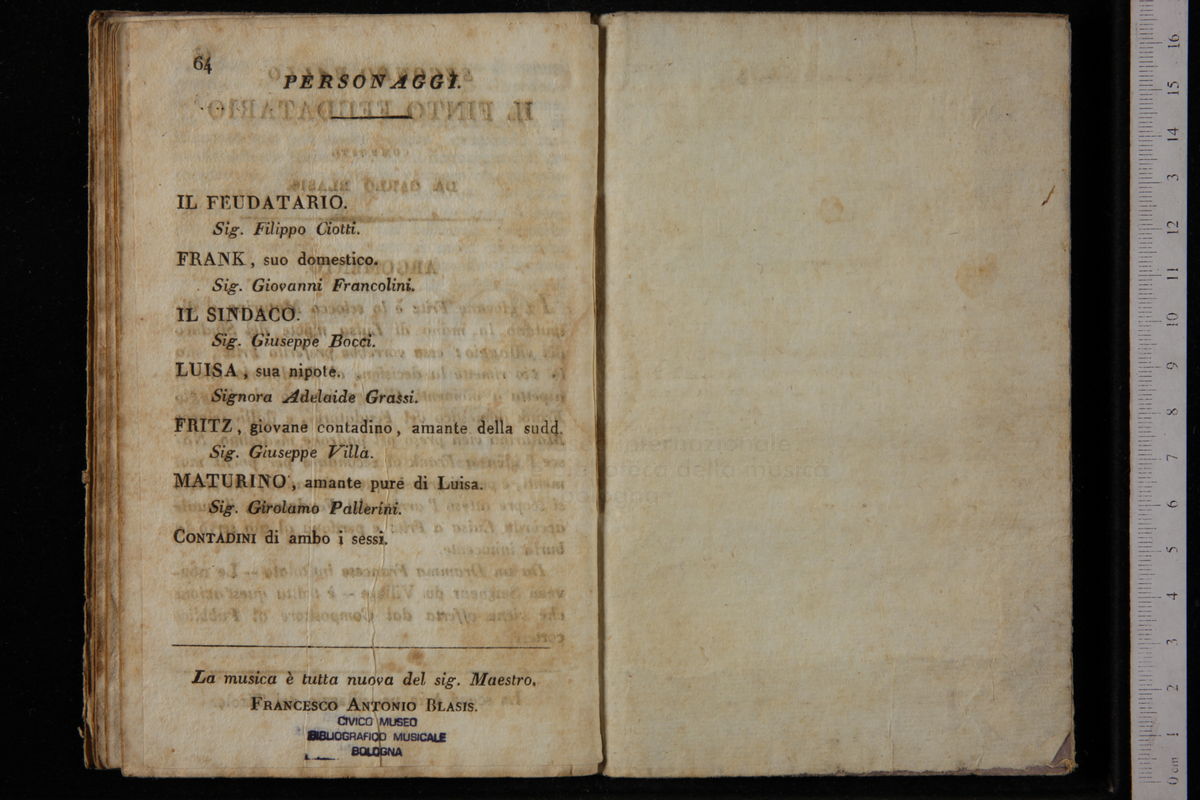 64
PERSONAGGI.
IL FEUDATARIO.
Sig. Filippo Ciotti.
FRANK, suo domestico.
Sig. Giovanni Francolini.
IL SINDACO.
Sig. Giuseppe Bocci.
LUISA, sua nipote.
Signora Adelaide Grassi.
FRITZ, giovane contadino, amante della sudd.
Sig. Giuseppe Villa.
MATURINO, amante pure di Luisa.
Sig. Girolamo Pallerini.
CONTADINI di ambo i sessi.
La musica è tutta nuova del sig. Maestro,
FRANCESCO ANTONIO BLASIS.
CIVICO MUSEO
BIBLIOGRAFICO MUSICALE
BOLOGNA
museo internazionale
e biblioteca della musica
bologna
16
15
14
3
12
11
10
9
8
7
6
5
4
3
2
1
0 cm